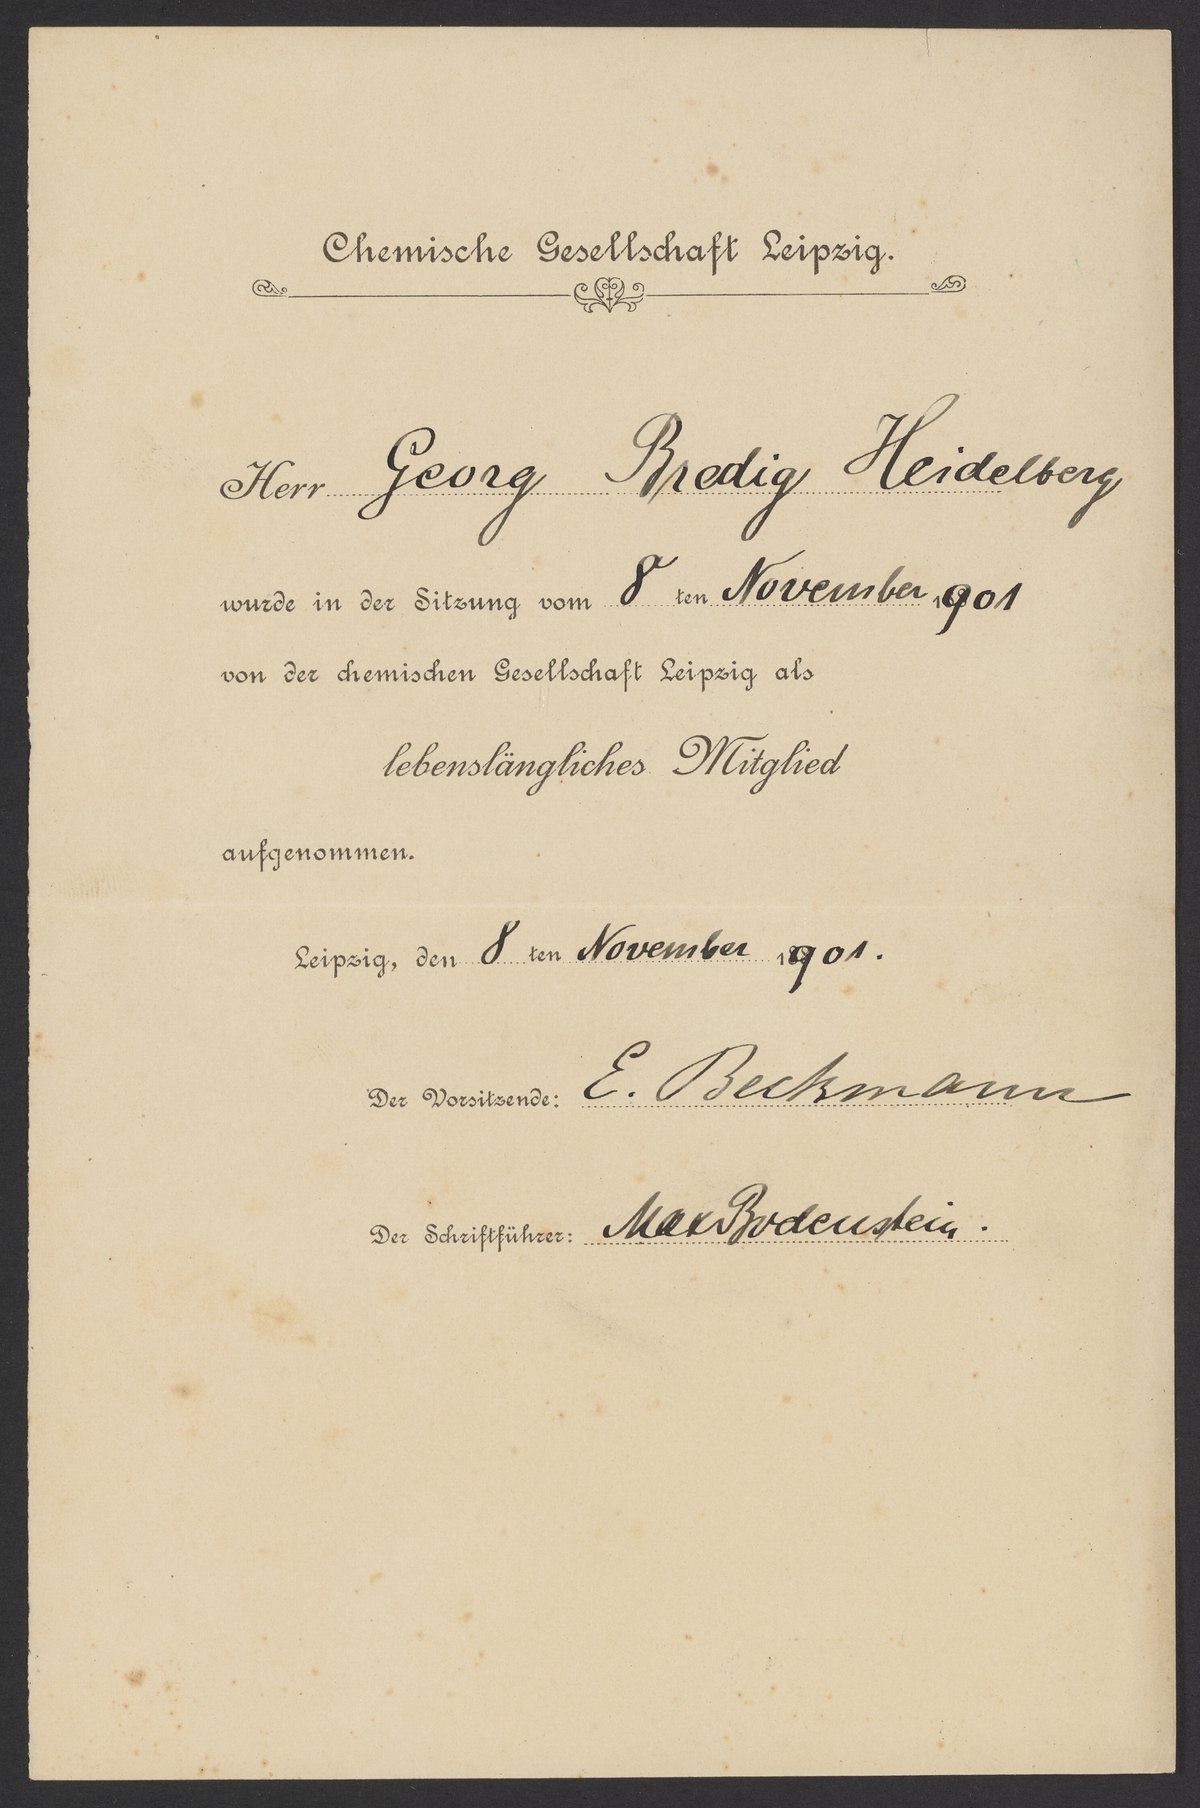 Chemische Gesellschaft Leipzig.
Herr Georg Bredig Heidelberg
wurde in der Sitzung vom 8 ten November 1901
von der chemischen Gesellschaft Leipzig als
lebenslängliches Mitglied
aufgenommen.
Leipzig, den 8 ten November 1901.
Der Vorsitzende: E. Beckmann
Der Schriftführer: Max Bodenstein.